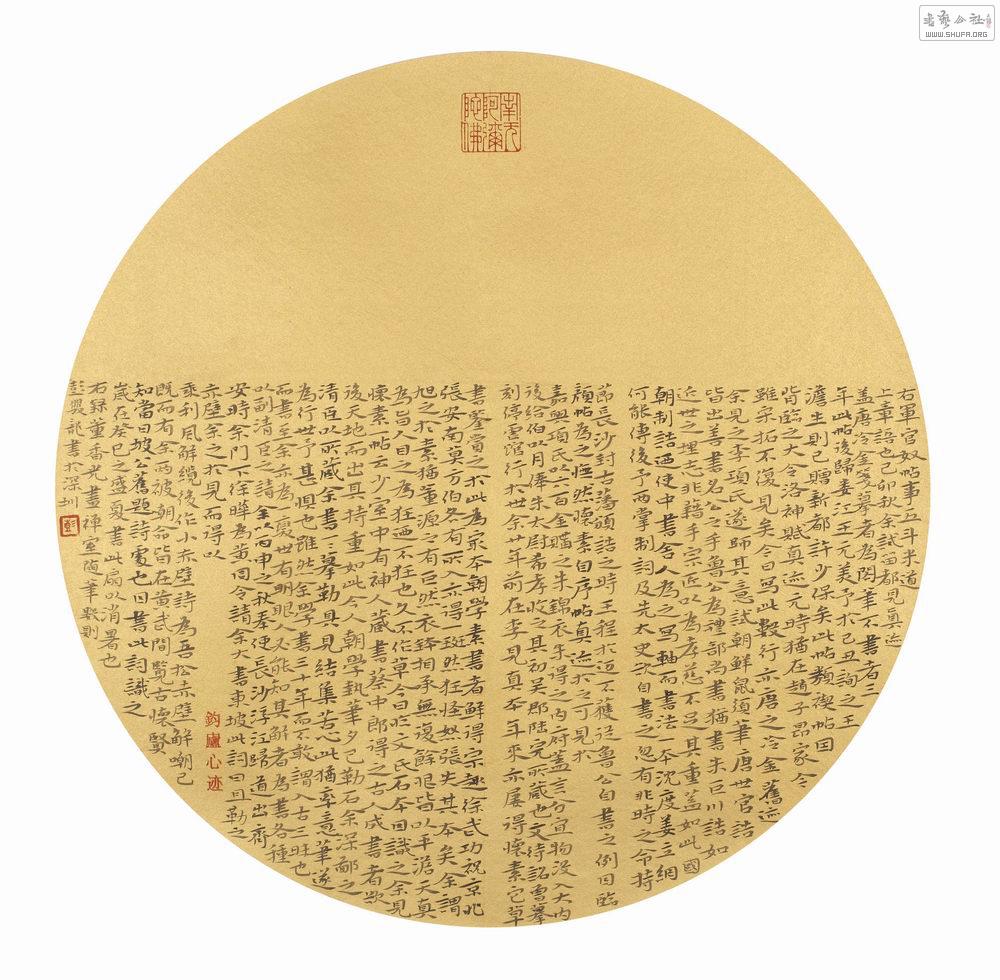 書藝公社
WWW.SHUFA.ORG
南无
阿彌
陀佛
右軍官奴帖事五斗米道
上章語也己卯秋余試留都見真迹
蓋唐冷金箋摹者為閣筆不書者三
年此帖後歸婁江王元美予於己丑詢之王
澹生則已贈新都許少保矣此帖類禊帖因
背臨之大令洛神賦真迹元時猶在趙子昂家今
雖宋拓不復見矣今日寫此數行亦唐之冷金舊迹
余見之李項氏遂師其意試朝鮮鼠須筆唐世官誥
皆出善書名公之手魯公為禮部尚書猶書朱巨川誥如
近世之埋志非藉手宗匠以為孝慈不呂其重蓋如此國
朝制誥迺使中書舍人為之寫軸而書法一本沈度姜立綱
何能傳後予兩掌制詞及先太史欲自書之忽有非時之命持
節長沙封吉藩頒誥之時王程於迈不獲從魯公自書之例因臨
顏帖為之慨然懷素自序帖真迹
嘉興項氏以六百金購之朱錦衣朱得之內府蓋言分宜物沒入大內
後給伯以月俸朱太尉希孝收之其初吳郡陸完所藏也文待詔曾摹
刻停雲館行於世余廿年前在李見真本年來亦屢得懷素它草
書鑒賞之於此為最本朝學素書者鮮得宗趣徐武功祝京兆
張安南莫方伯各有所入亦得一斑然狂怪怒張失其本矣余謂
旭之於素猶董源之有巨然衣鉢相承無復餘恨皆以平澹天真
為旨人目之為狂迺不狂也久不作草今日臨文氏石本因識之余見
懷素一帖云少室中有神人藏書蔡中郎得之古人成書者欲
後天地而出其持重如此今人朝學執筆夕已勒石余深鄙之
清臣以所藏余書一一摹勒具見結集苦心此猶率意筆遂
為行世予甚懼也雖然余學書三十年而不敢謂入古三昧也
而書至余亦為一變世有明眼人又能知其解者為書各種
以副清臣之請
安時余門下徐暐為黃岡令請余大書東坡此詞曰且勒之
赤壁余之於見而得以
乘利風解纜後作小赤壁詩為吾松赤壁解嘲已
既而有余兩被朝命皆在黃武間覽古懷賢
知當日坡公舊題詩處也因書此詞識之
歲在癸巳之盛夏書此扇以消暑也
右錄董香光畫禪室隨筆數則
彭雙龍書於深圳
彭
鈞廬心迹